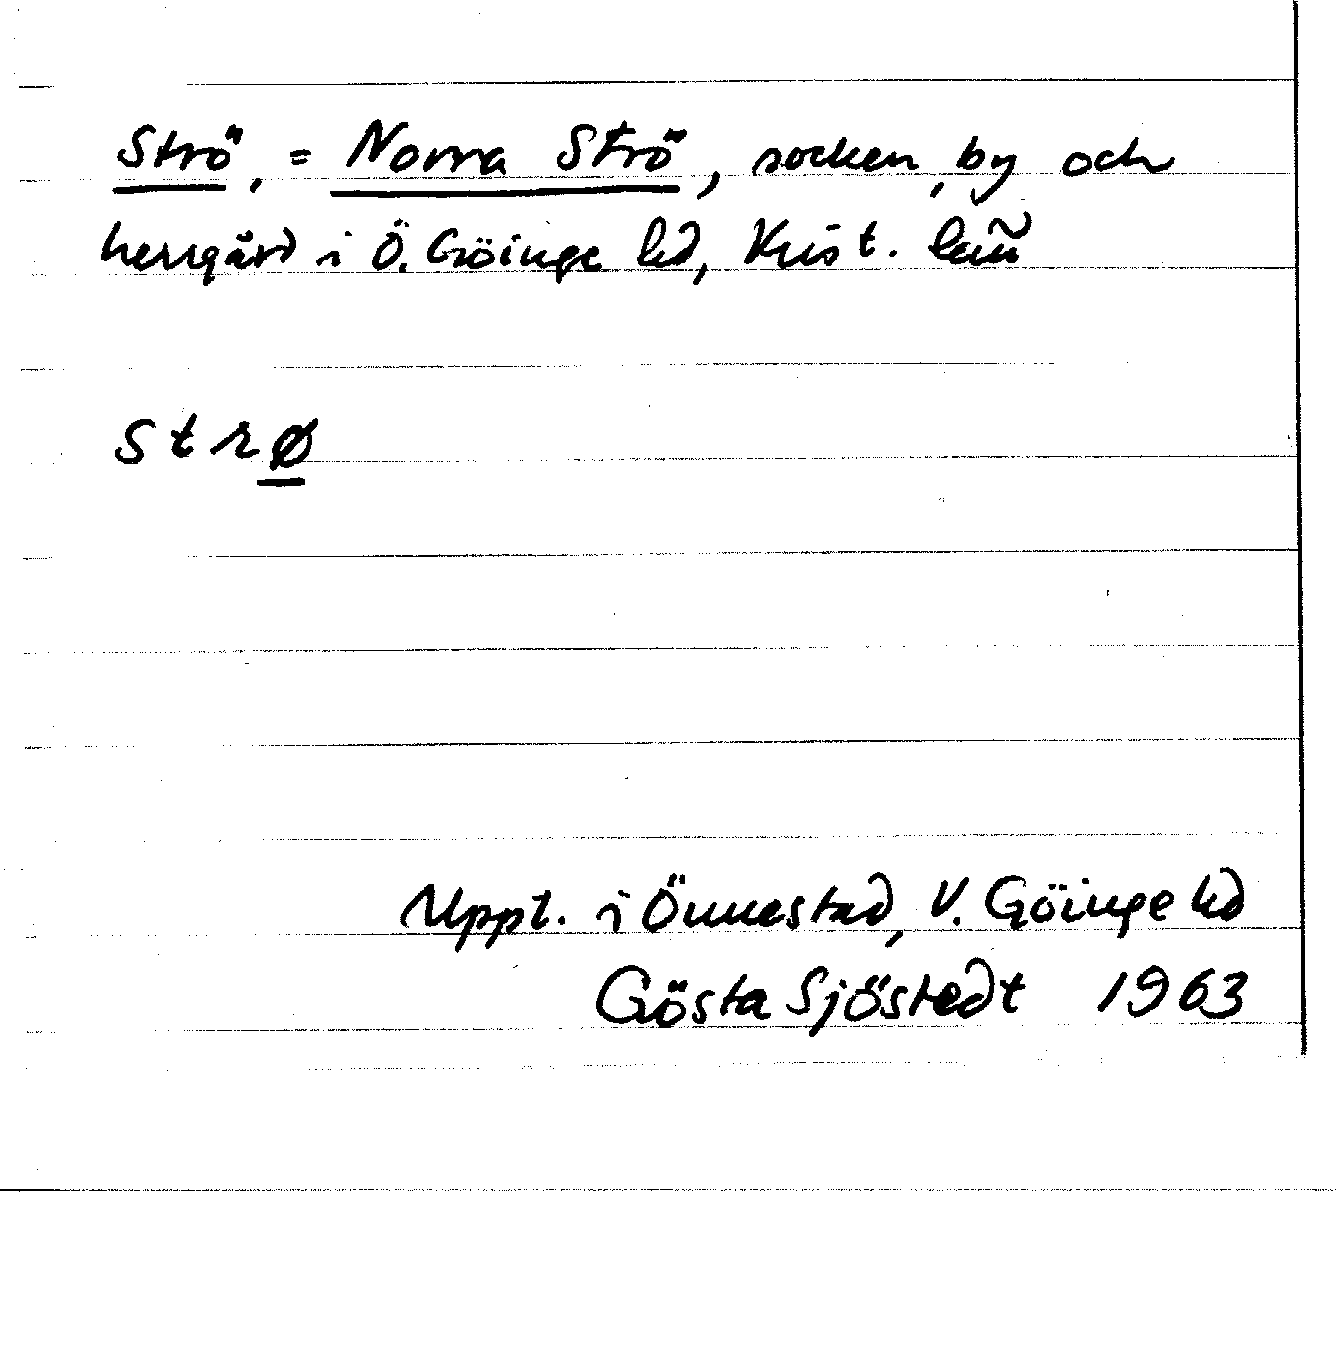 Strö, = Norra Strö, socken, by och
herrgård i Ö. Göinge hd, Krist. län
strø
Uppt. i Önnestad, V. Göinge hd
Gösta Sjöstedt 1963